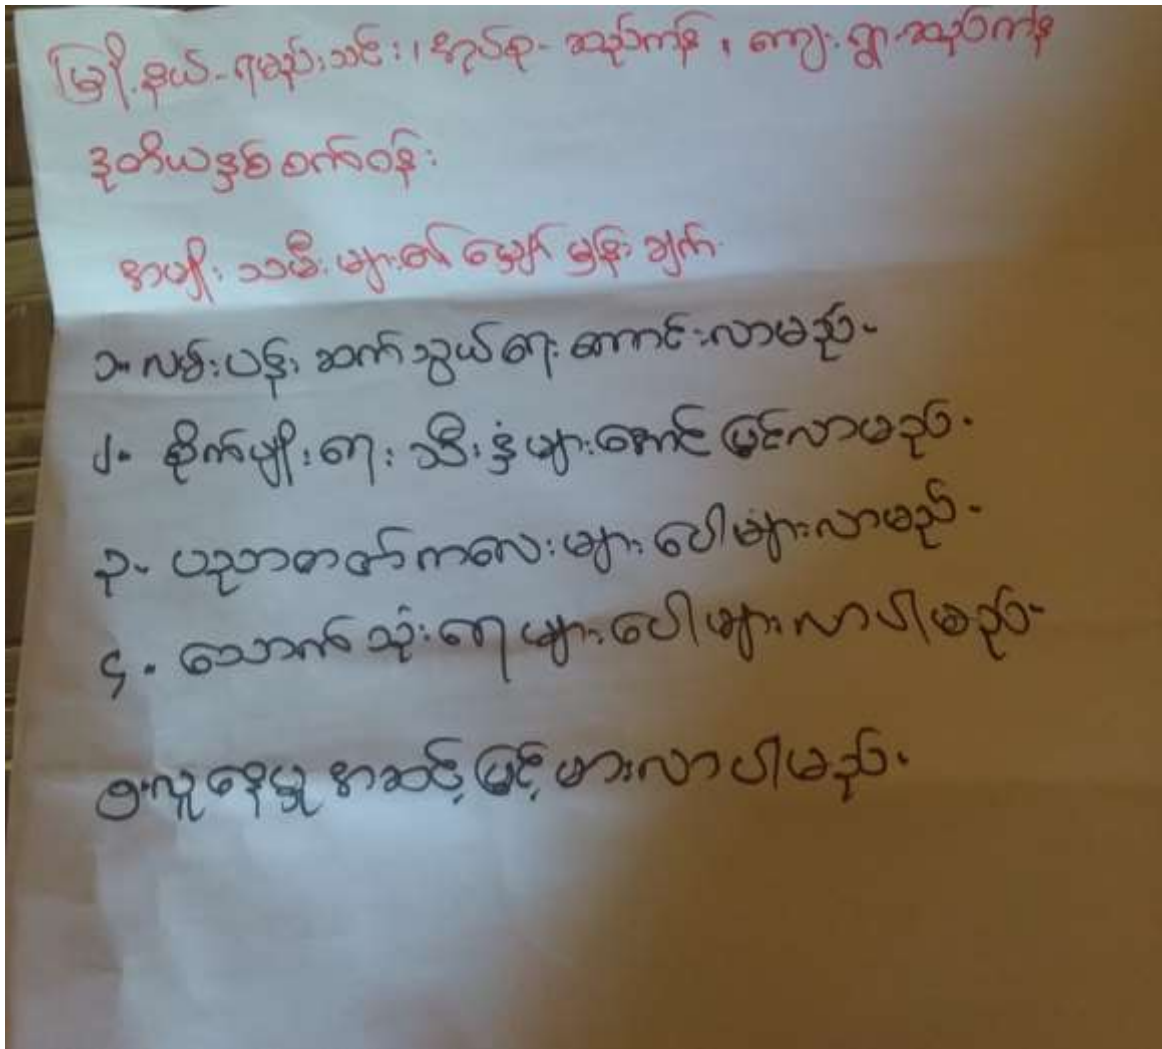 မြို့နယ်-ရမည်းသင်း၊ အုပ်စု-ဆည်ကန်၊ ကျေးရွာ-ဆည်ကန်
ဒုတိယနှစ်စက်ဝန်း
အမျိုးသမီးများ၏မျှော်မှန်းချက်
၁-လမ်းပန်းဆက်သွယ်ရေးကောင်းလာမည်-
၂- စိုက်ပျိုးရေးသီးနှံများအောင်မြင်လာမည်-
၃- ပညာတတ်ကလေးများပေါများလာမည်-
၄- သောက်သုံးရေများပေါများလာပါမည်-
၅-လူနေမှုအဆင့်မြင့်မားလာပါမည်-